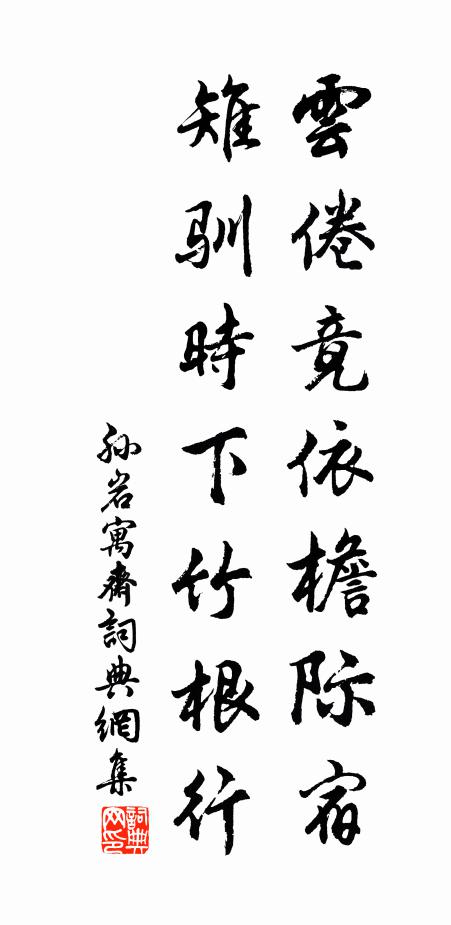 雲倦竟依檐际宿
雉馴時下竹根行
孙岩寓齋詞典網集
詞典网印